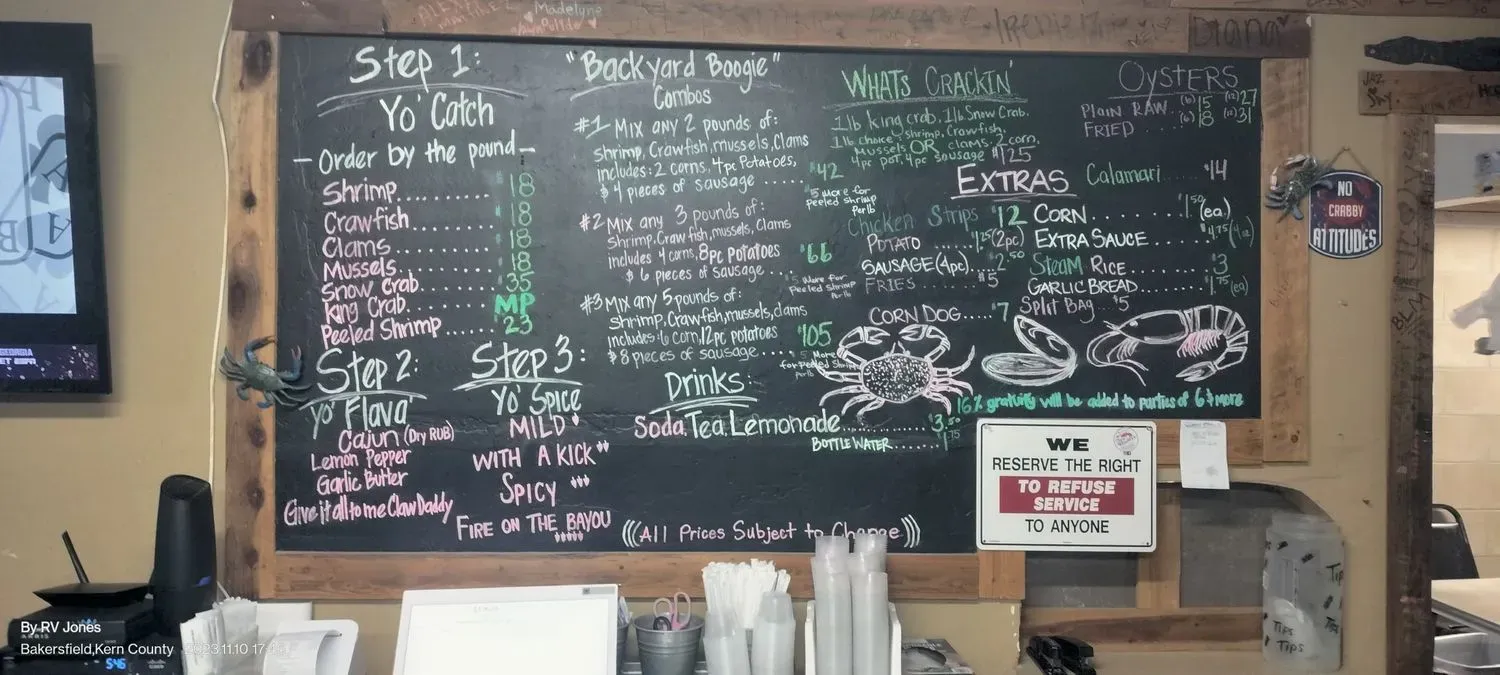 Madelyne
Diana
Step 1:
Yo' Catch
- Order by the pound -
Shrimp......... $18
Crawfish........ $18
Clams.......... $18
Mussels......... $18
Snow Crab........ 35
King Crab....... MP
Peeled Shrimp..... $23
Step 2:
Yo' Flava
Cajun (Dry RUB)
Lemon Pepper
Garlic Butter
Give it all to me Claw Daddy
Step 3:
Yo' Spice
MILD
WITH A KICK
SPICY
FIRE ON THE BAYOU
"Backyard Boogie"
Combos
#1 Mix any 2 pounds of:
shrimp, Crawfish, mussels, Clams
includes: 2 corns, 4pc Potatoes,
$ 4 pieces of sausage ..... $42
$5 More for
peeled Shrimp
Per lb
#2 Mix any 3 pounds of:
shrimp, Crawfish, mussels, Clams
includes 4 corns, 8pc potatoes
$ 6 pieces of sausage.... $66
$5 More for
Peeled Shrimp
Per lb
#3 Mix any 5 pounds of:
shrimp, Crawfish, mussels, clams
includes: 6 corn, 12pc potatoes
$ 8 pieces of sausage..... $105
$5 More
for peeled Shrimp
per lb
Drinks:
Soda, Tea, Lemonade.......... $3.50
BOTTLE WATER.......
(((All Prices Subject to Change)))
WHATS CRACKIN'
1lb king crab, 1lb Snow Crab.
1lb choice: shrimp, Crawfish,
Mussels OR clams, 2 corn,
4pc pot, 4pc sausage $125
OYSTERS
Plain RAW.. (6) 15 (12) 27
FRIED .... (6) 18 (12) 31
EXTRAS
Calamari..... $14
Chicken Strips $12
POTATO ..... $1.25 (2pc)
SAUSAGE (4pc).. $2.50
FRIES ...... $5
CORN DOG..... $7
CORN ......... $1.50 (ea)
EXTRA SAUCE ...... $4.75 (4oz)
Steam RICE........ $3
GARLIC BREAD....... $1.75 (ea)
Split Bag.. $5
16% gratuity will be added to parties of 6 $ more
NO
CRABBY
ATTITUDES
WE
RESERVE THE RIGHT
TO REFUSE
SERVICE
TO ANYONE
Tips
Tips
By RV Jones
Bakersfield,Kern County
546